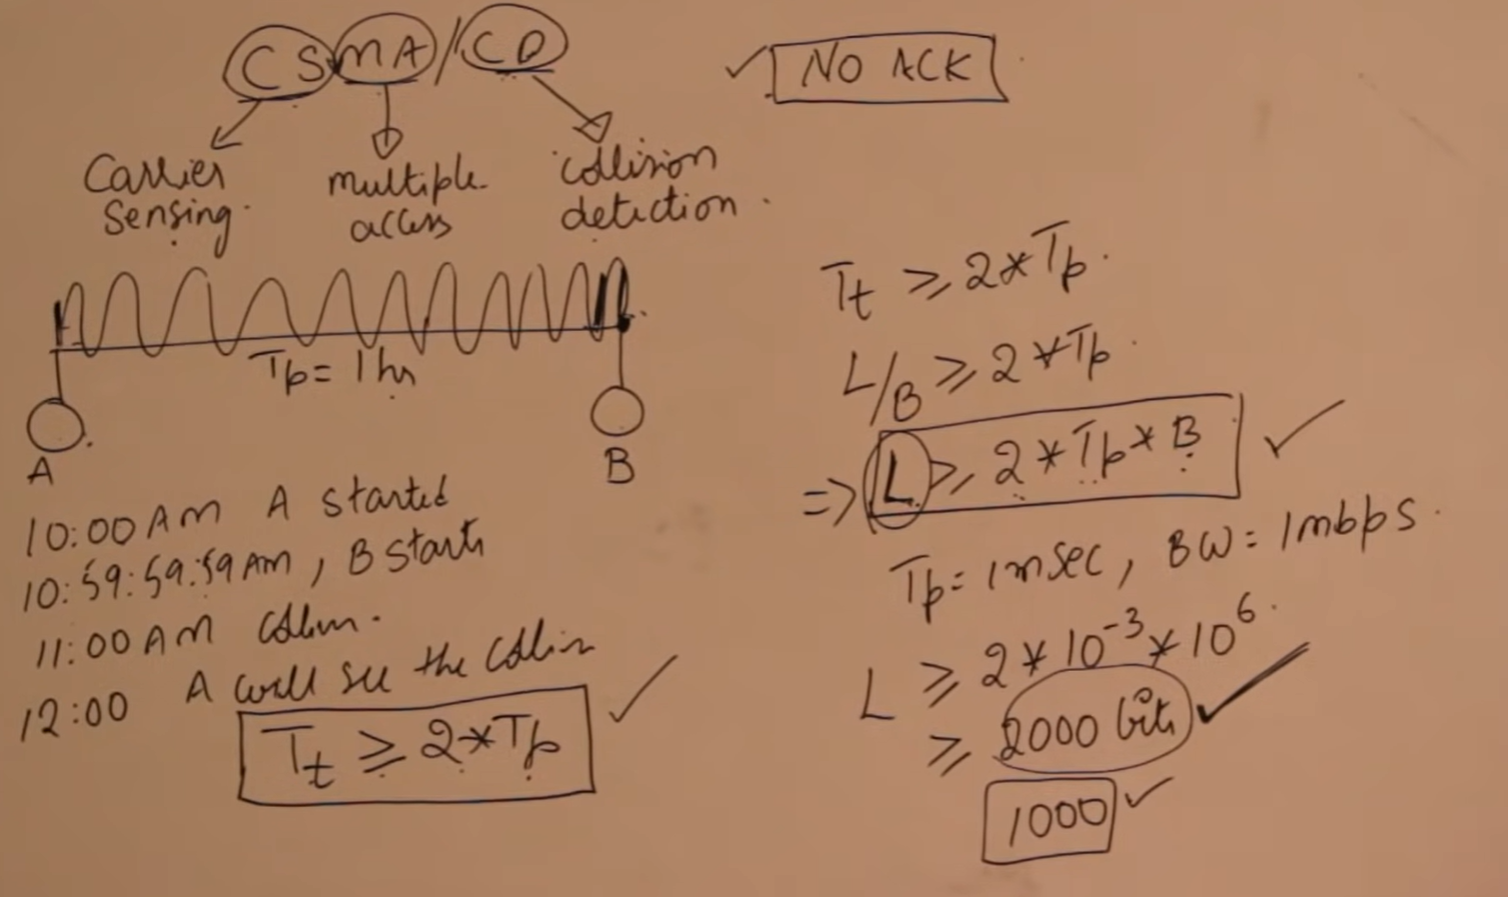 CSMA/CD
NO ACK
Carrier
Sensing.
multiple
access
collision
detection.
Tp = 1 hr
A
B
10:00 AM A started
10:59:59:59 AM, B starts
11:00 AM
12:00 A will see the
Tt ≥ 2*Tp
Tt ≥ 2*Tp.
L/B ≥ 2*Tp.
=> L ≥ 2*Tp*B
Tp = 1msec, BW = 1mbps.
L ≥ 2*10⁻³*10⁶.
≥ 2000 bits
1000